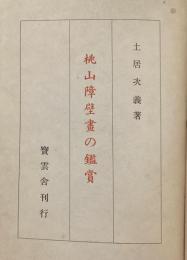 土居次義著
桃山障壁畫の鑑賞
寳雲舎刊行